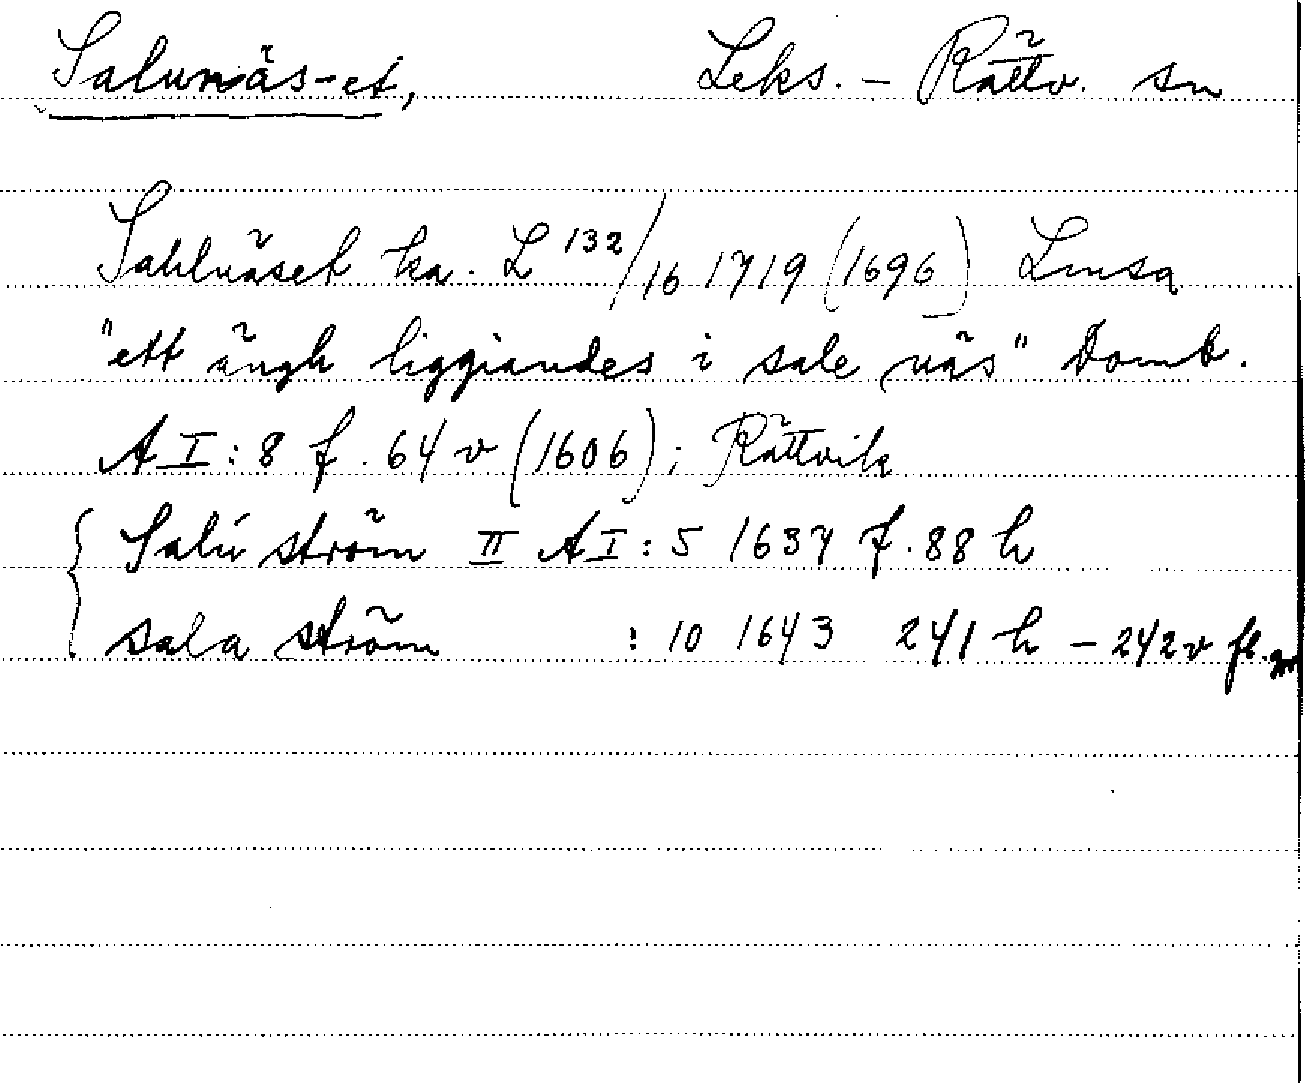 Salunäs-et, Leks. - Rättv. sn
Sahlnäset ka. L 132/16 1719 (1696) Lmsa
"ett ängh liggiandes i sale näs" Domb.
A I : 8 f. 64 v (1606); Rättvik
Salú ström II A I : 5 1637 f. 88 h
sala ström : 10 1643 241 h - 242 v fl.